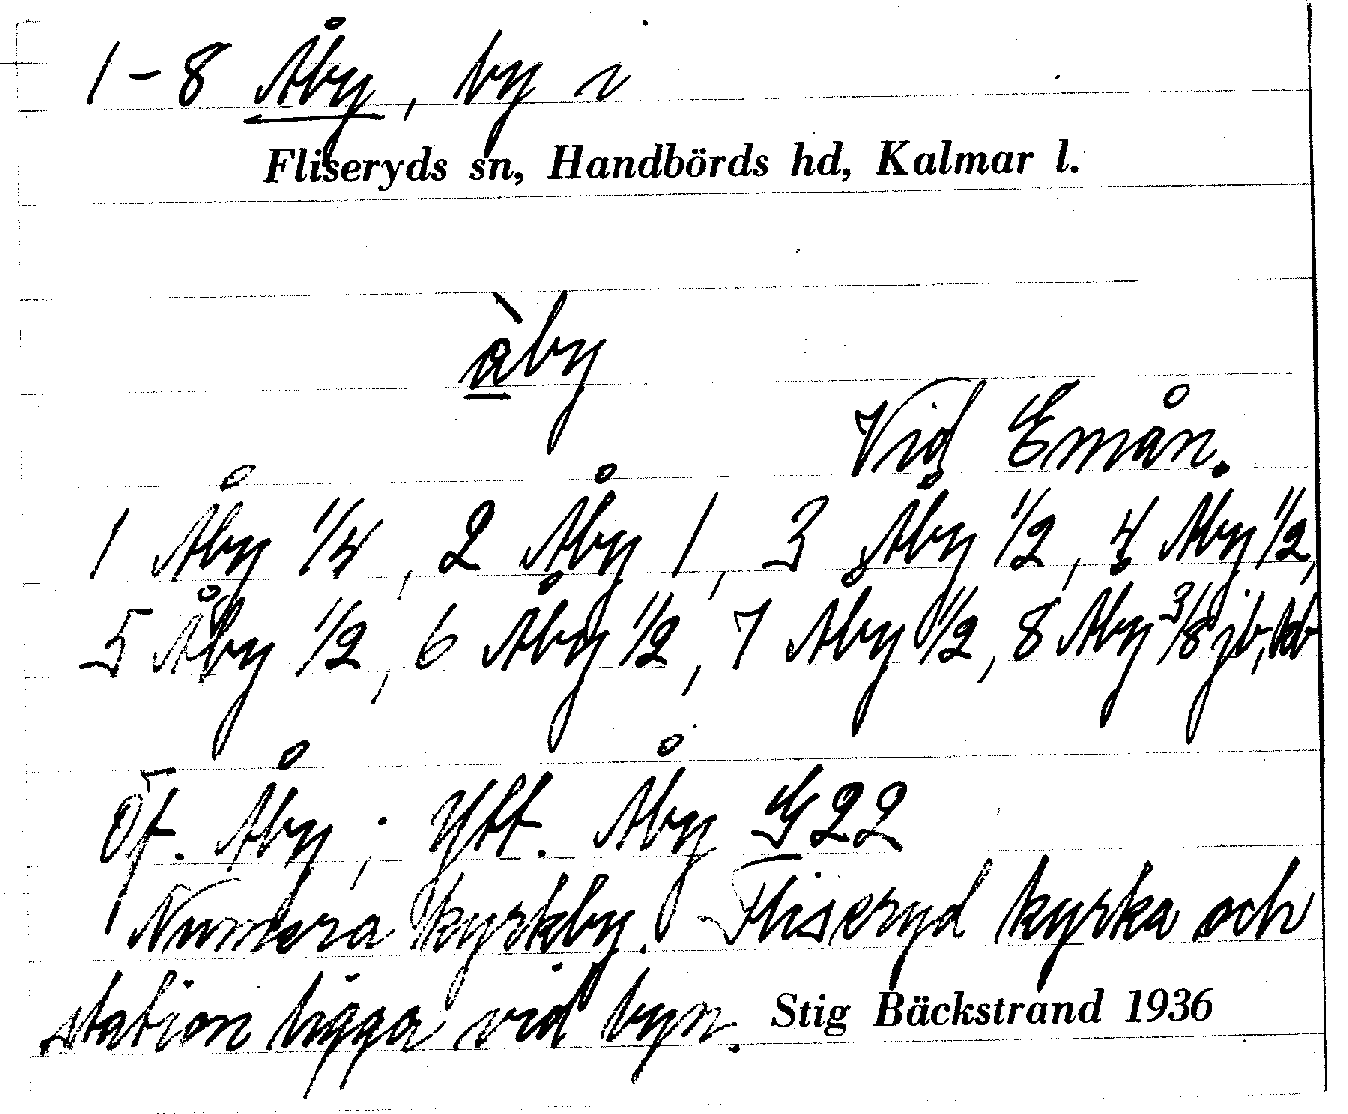 1–8 Åby, by i
Fliseryds sn, Handbörds hd, Kalmar l.
àby
Vid Emån.
1 Åby 1/4, 2 Åby 1, 3 Åby 1/2, 4 Åby 1/2,
5 Åby 1/2, 6 Åby 1/2, 7 Åby 1/2, 8 Åby 3/8 jb, kb
Öf. Åby; Ytt. Åby G22
Numera kyrkby. Fliseryd kyrka och
station ligga vid byn. Stig Bäckstrand 1936